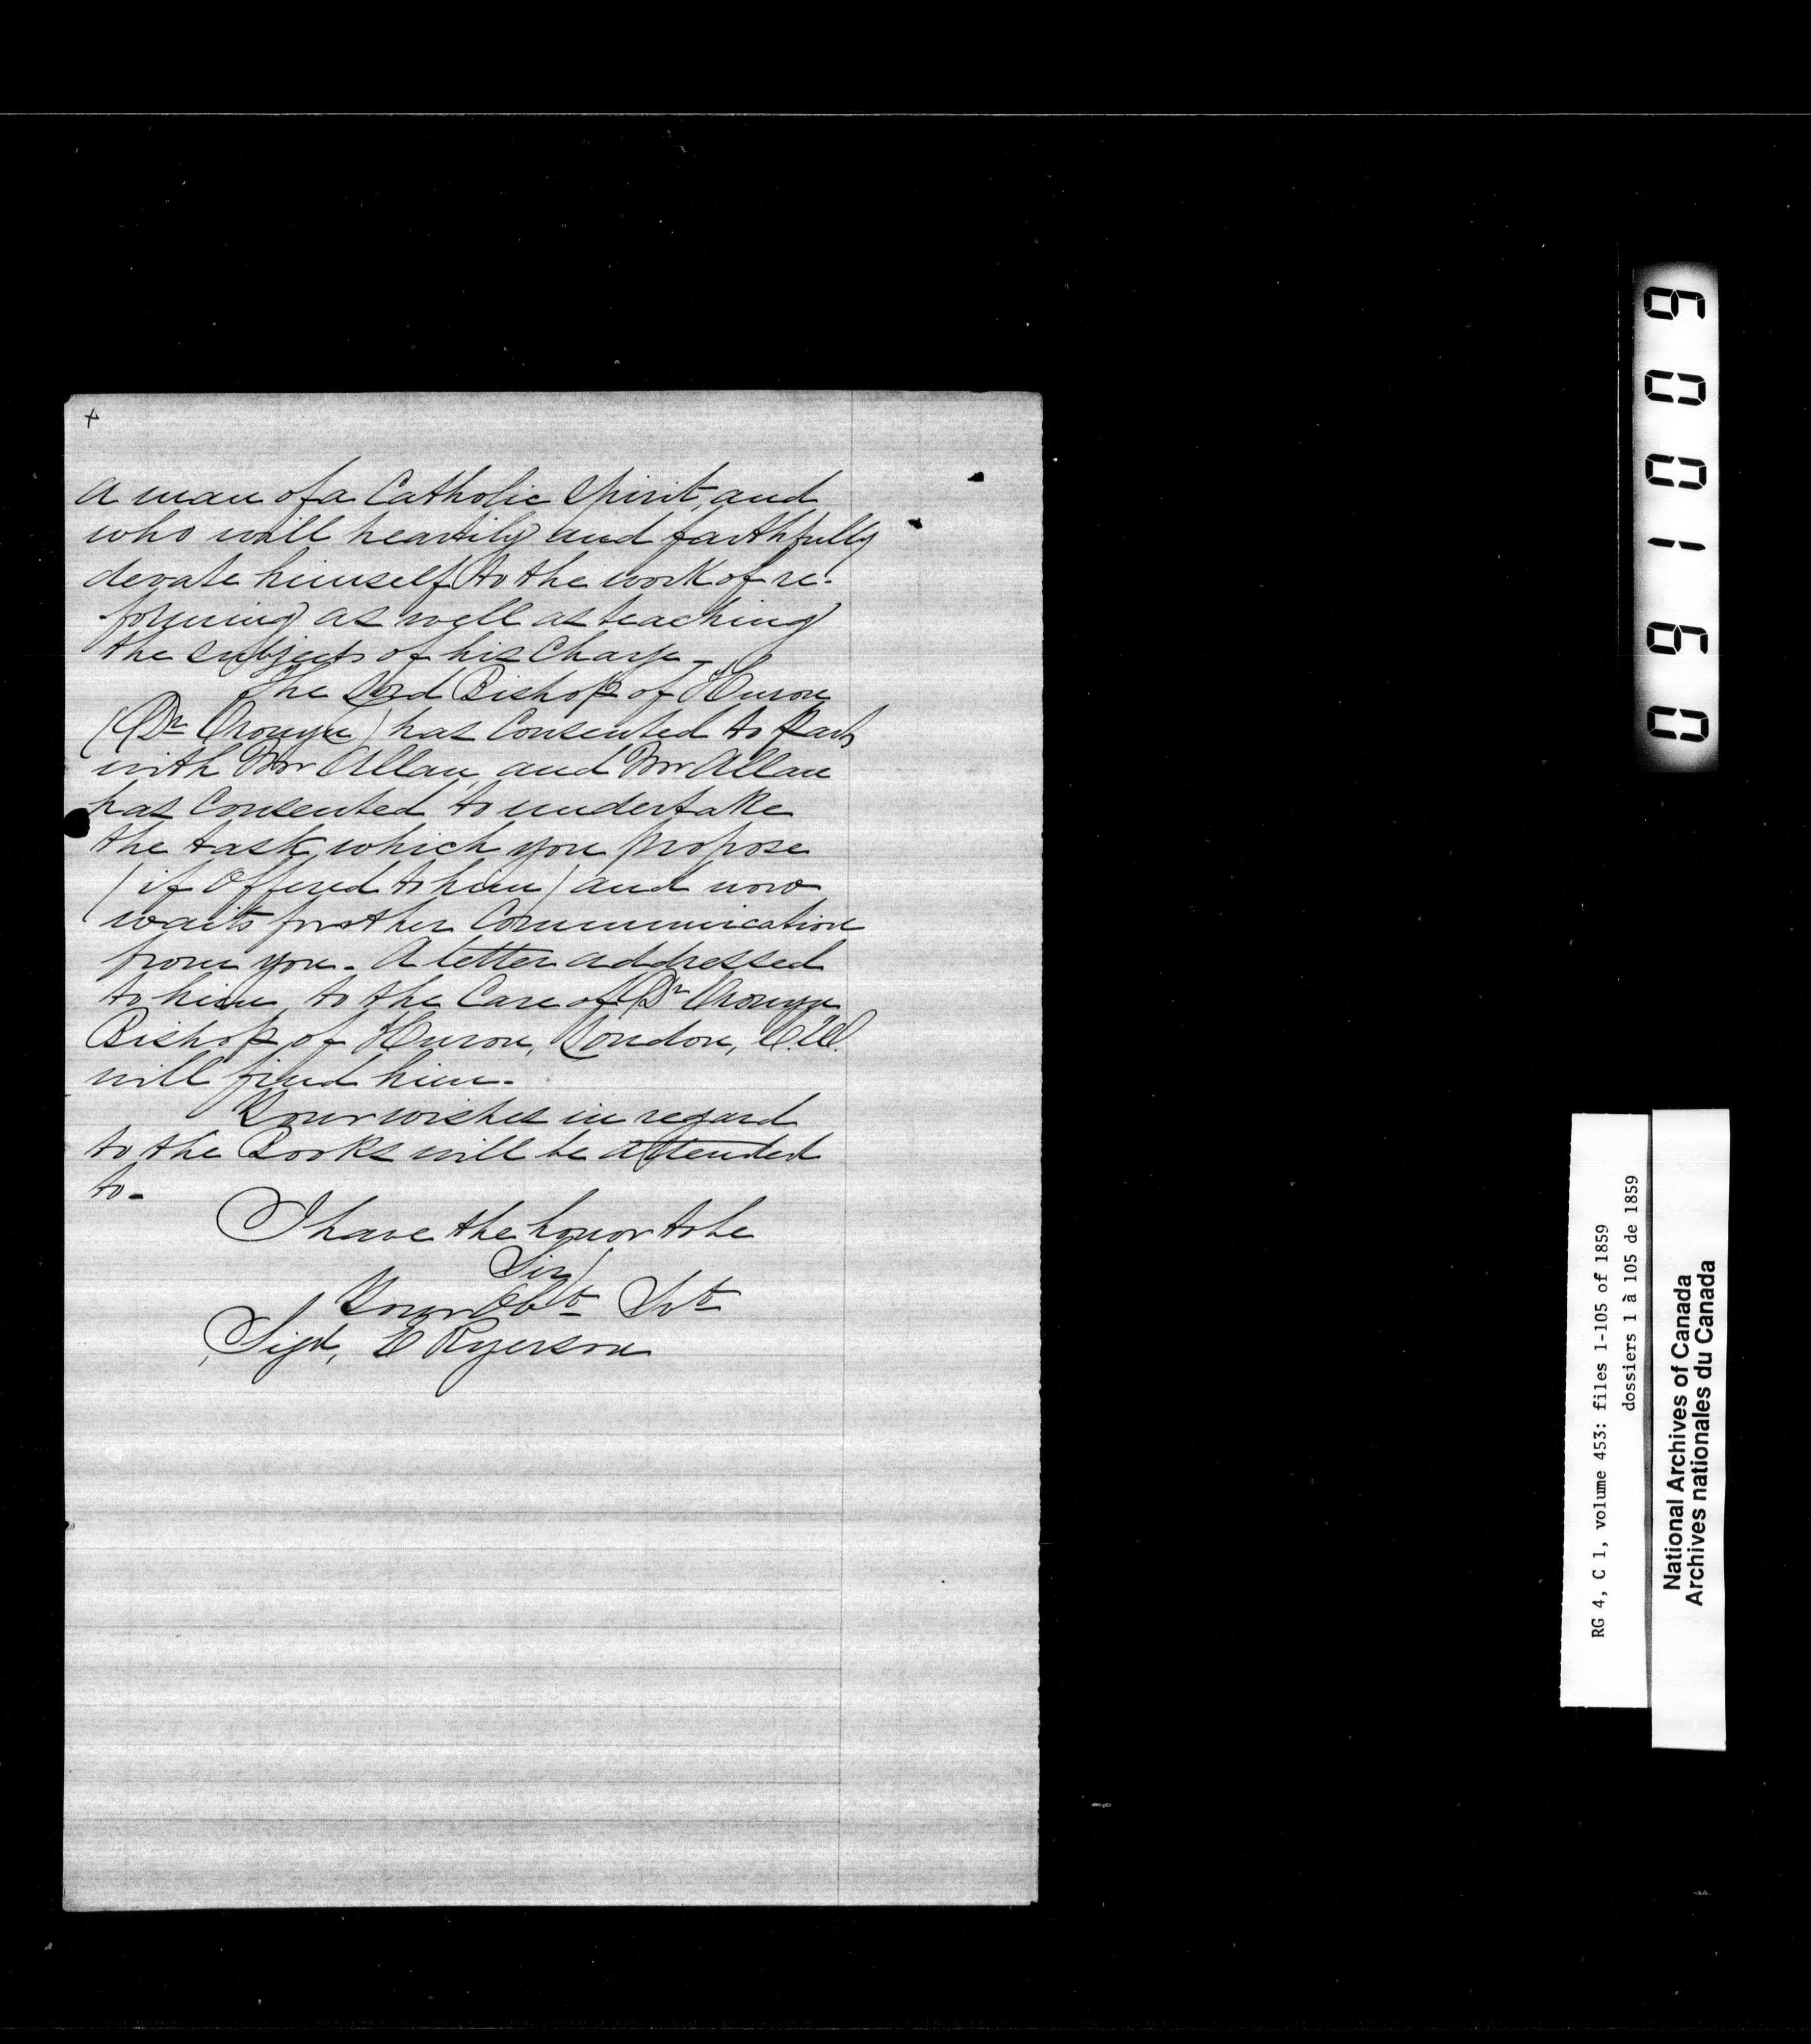 +
a man of a Catholic Spirit, and
who will heartily and faithfully
devote himself to the work of re-
forming as well as teaching
the subjects of his Charge -
The Lord Bishop of Huron
(Dr Cronyn) has Consented to Part
with Mr Allan, and Mr Allan
has Consented to undertake
the task which you propose
(if Offered to him) and now
waits further Communication
from you - A letter addressed
to him, to the Care of Dr Cronyn
Bishop of Huron, London, C.W.
will find him -
Your wishes in regard
to the Books will be attended
to -
I have the honor to be
Sir,
Your Obt Svt
Sigd, E Ryerson
091009
RG 4, C 1, volume 453: files 1-105 of 1859
dossiers 1 à 105 de 1859
National Archives of Canada
Archives nationales du Canada